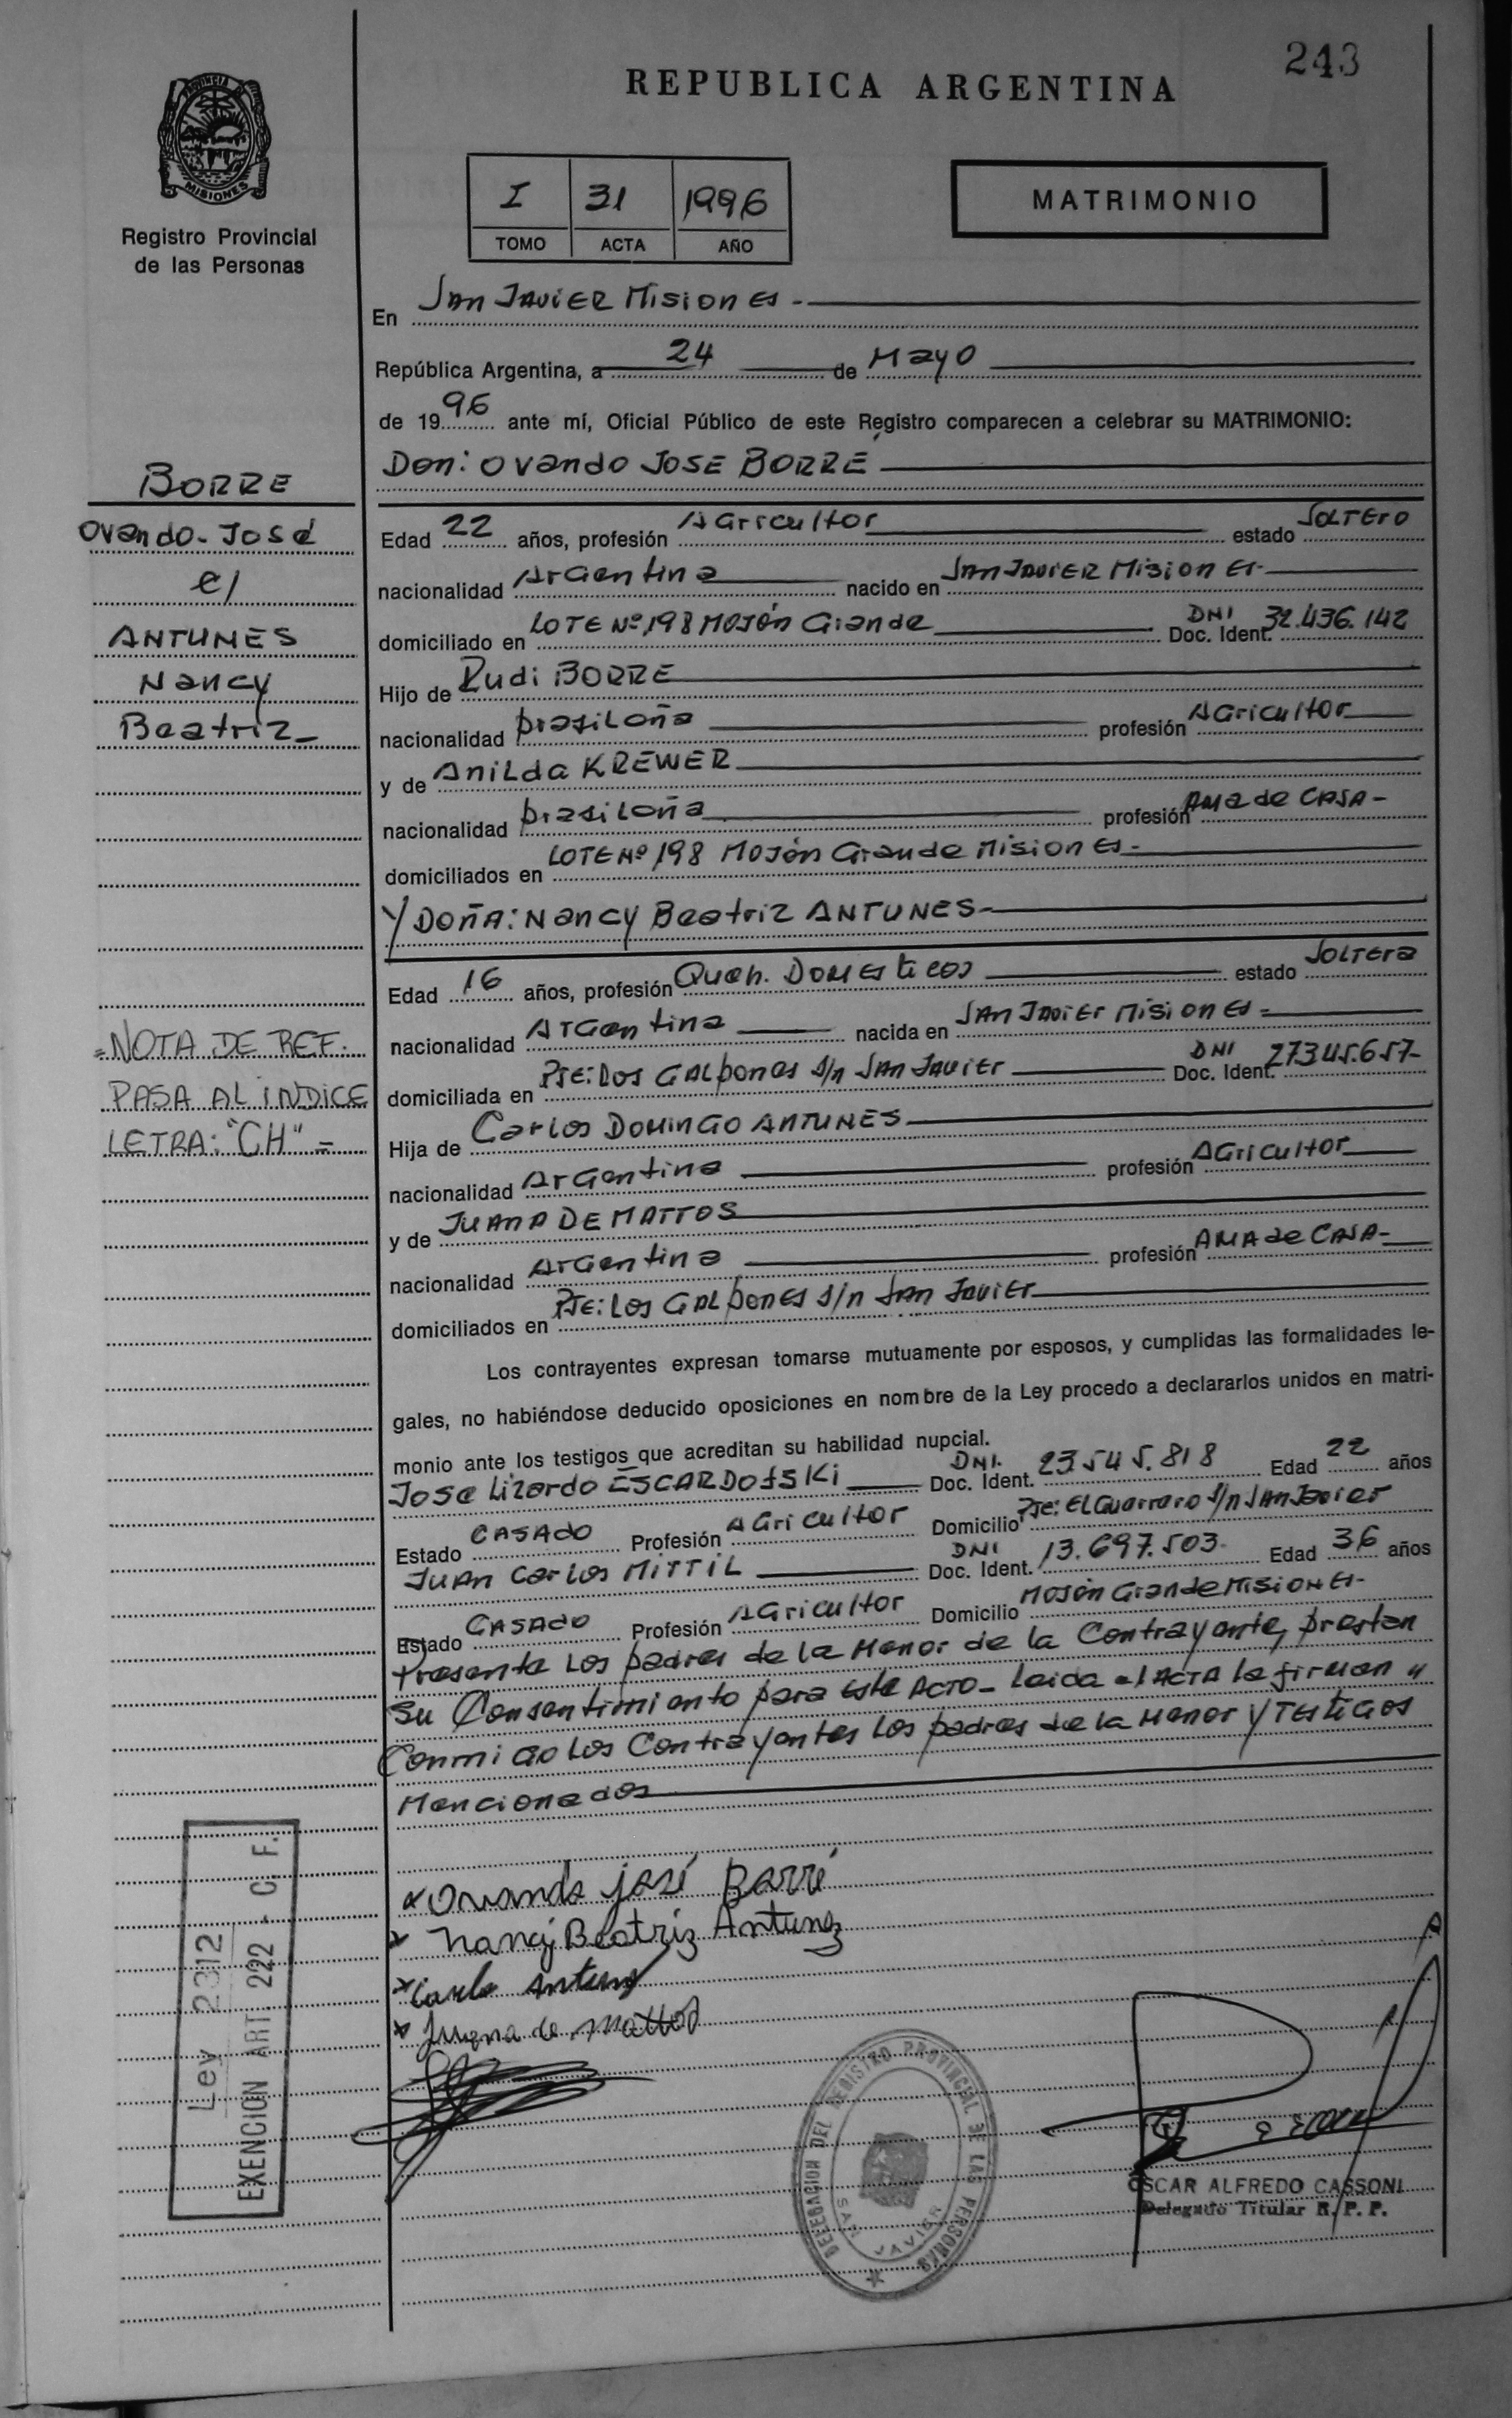 243
REPUBLICA ARGENTINA
PROVINCIA DE
MISIONES
Registro Provincial
de las Personas
I 31 1996
TOMO ACTA AÑO
MATRIMONIO
En San Javier Misiones -
República Argentina, a 24 de Mayo
de 1996 ante mí, Oficial Público de este Registro comparecen a celebrar su MATRIMONIO:
Don: Ovando José BORRÉ
BORRE
Ovando - José
c/
ANTUNES
Nancy
Beatriz -
Edad 22 años, profesión Agricultor estado Soltero
nacionalidad Argentina nacido en San Javier Misiones -
domiciliado en LOTE Nº 198 Mojón Grande DNI Doc. Ident. 32.436.142
Hijo de Rudi BORRE
nacionalidad brasileña profesión Agricultor
y de Anilda KREWER
nacionalidad brasileña profesión Ama de CASA -
domiciliados en LOTE Nº 198 Mojón Grande Misiones -
Y DOÑA: Nancy Beatriz ANTUNES -
Edad 16 años, profesión Queh. Domesticos estado Soltera
nacionalidad Argentina nacida en San Javier Misiones -
domiciliada en Pje: Los Galpones s/n San Javier DNI Doc. Ident. 27.345.657 -
Hija de Carlos Domingo ANTUNES
nacionalidad Argentina profesión Agricultor
y de JUANA DE MATTOS
nacionalidad Argentina profesión AMA de CASA -
domiciliados en Pje: Los Galpones s/n San Javier
= NOTA DE REF.
PASA AL INDICE
LETRA: "CH" =
Los contrayentes expresan tomarse mutuamente por esposos, y cumplidas las formalidades le-
gales, no habiéndose deducido oposiciones en nombre de la Ley procedo a declararlos unidos en matri-
monio ante los testigos que acreditan su habilidad nupcial.
Jose Lizardo DNI. Doc. Ident. 23.545.818 Edad 22 años
Estado CASADO Profesión Agricultor Domicilio Pje: El Guarrero s/n San Javier
Juan Carlos MITTIL DNI Doc. Ident. 13.697.503 - Edad 36 años
Estado CASADO Profesión Agricultor Domicilio Mojón Grande Misiones -
Presente Los padres de la Menor de la Contrayente, prestan
Su Consentimiento para este ACTO - Leida el ACTA la firman
Conmigo Los Contrayentes Los padres de la Menor y Testigos
Mencionados
Ovando josé Borré
Nancy Beatriz Antunez
Carlo Antunes
Juana de Mattos
Ley 2312
EXENCION ART. 222 - C. F.
DELEGACION DEL REGISTRO PROVINCIAL DE LAS PERSONAS
SAN JAVIER
OSCAR ALFREDO CASSONI
Delegado Titular R. P. P.